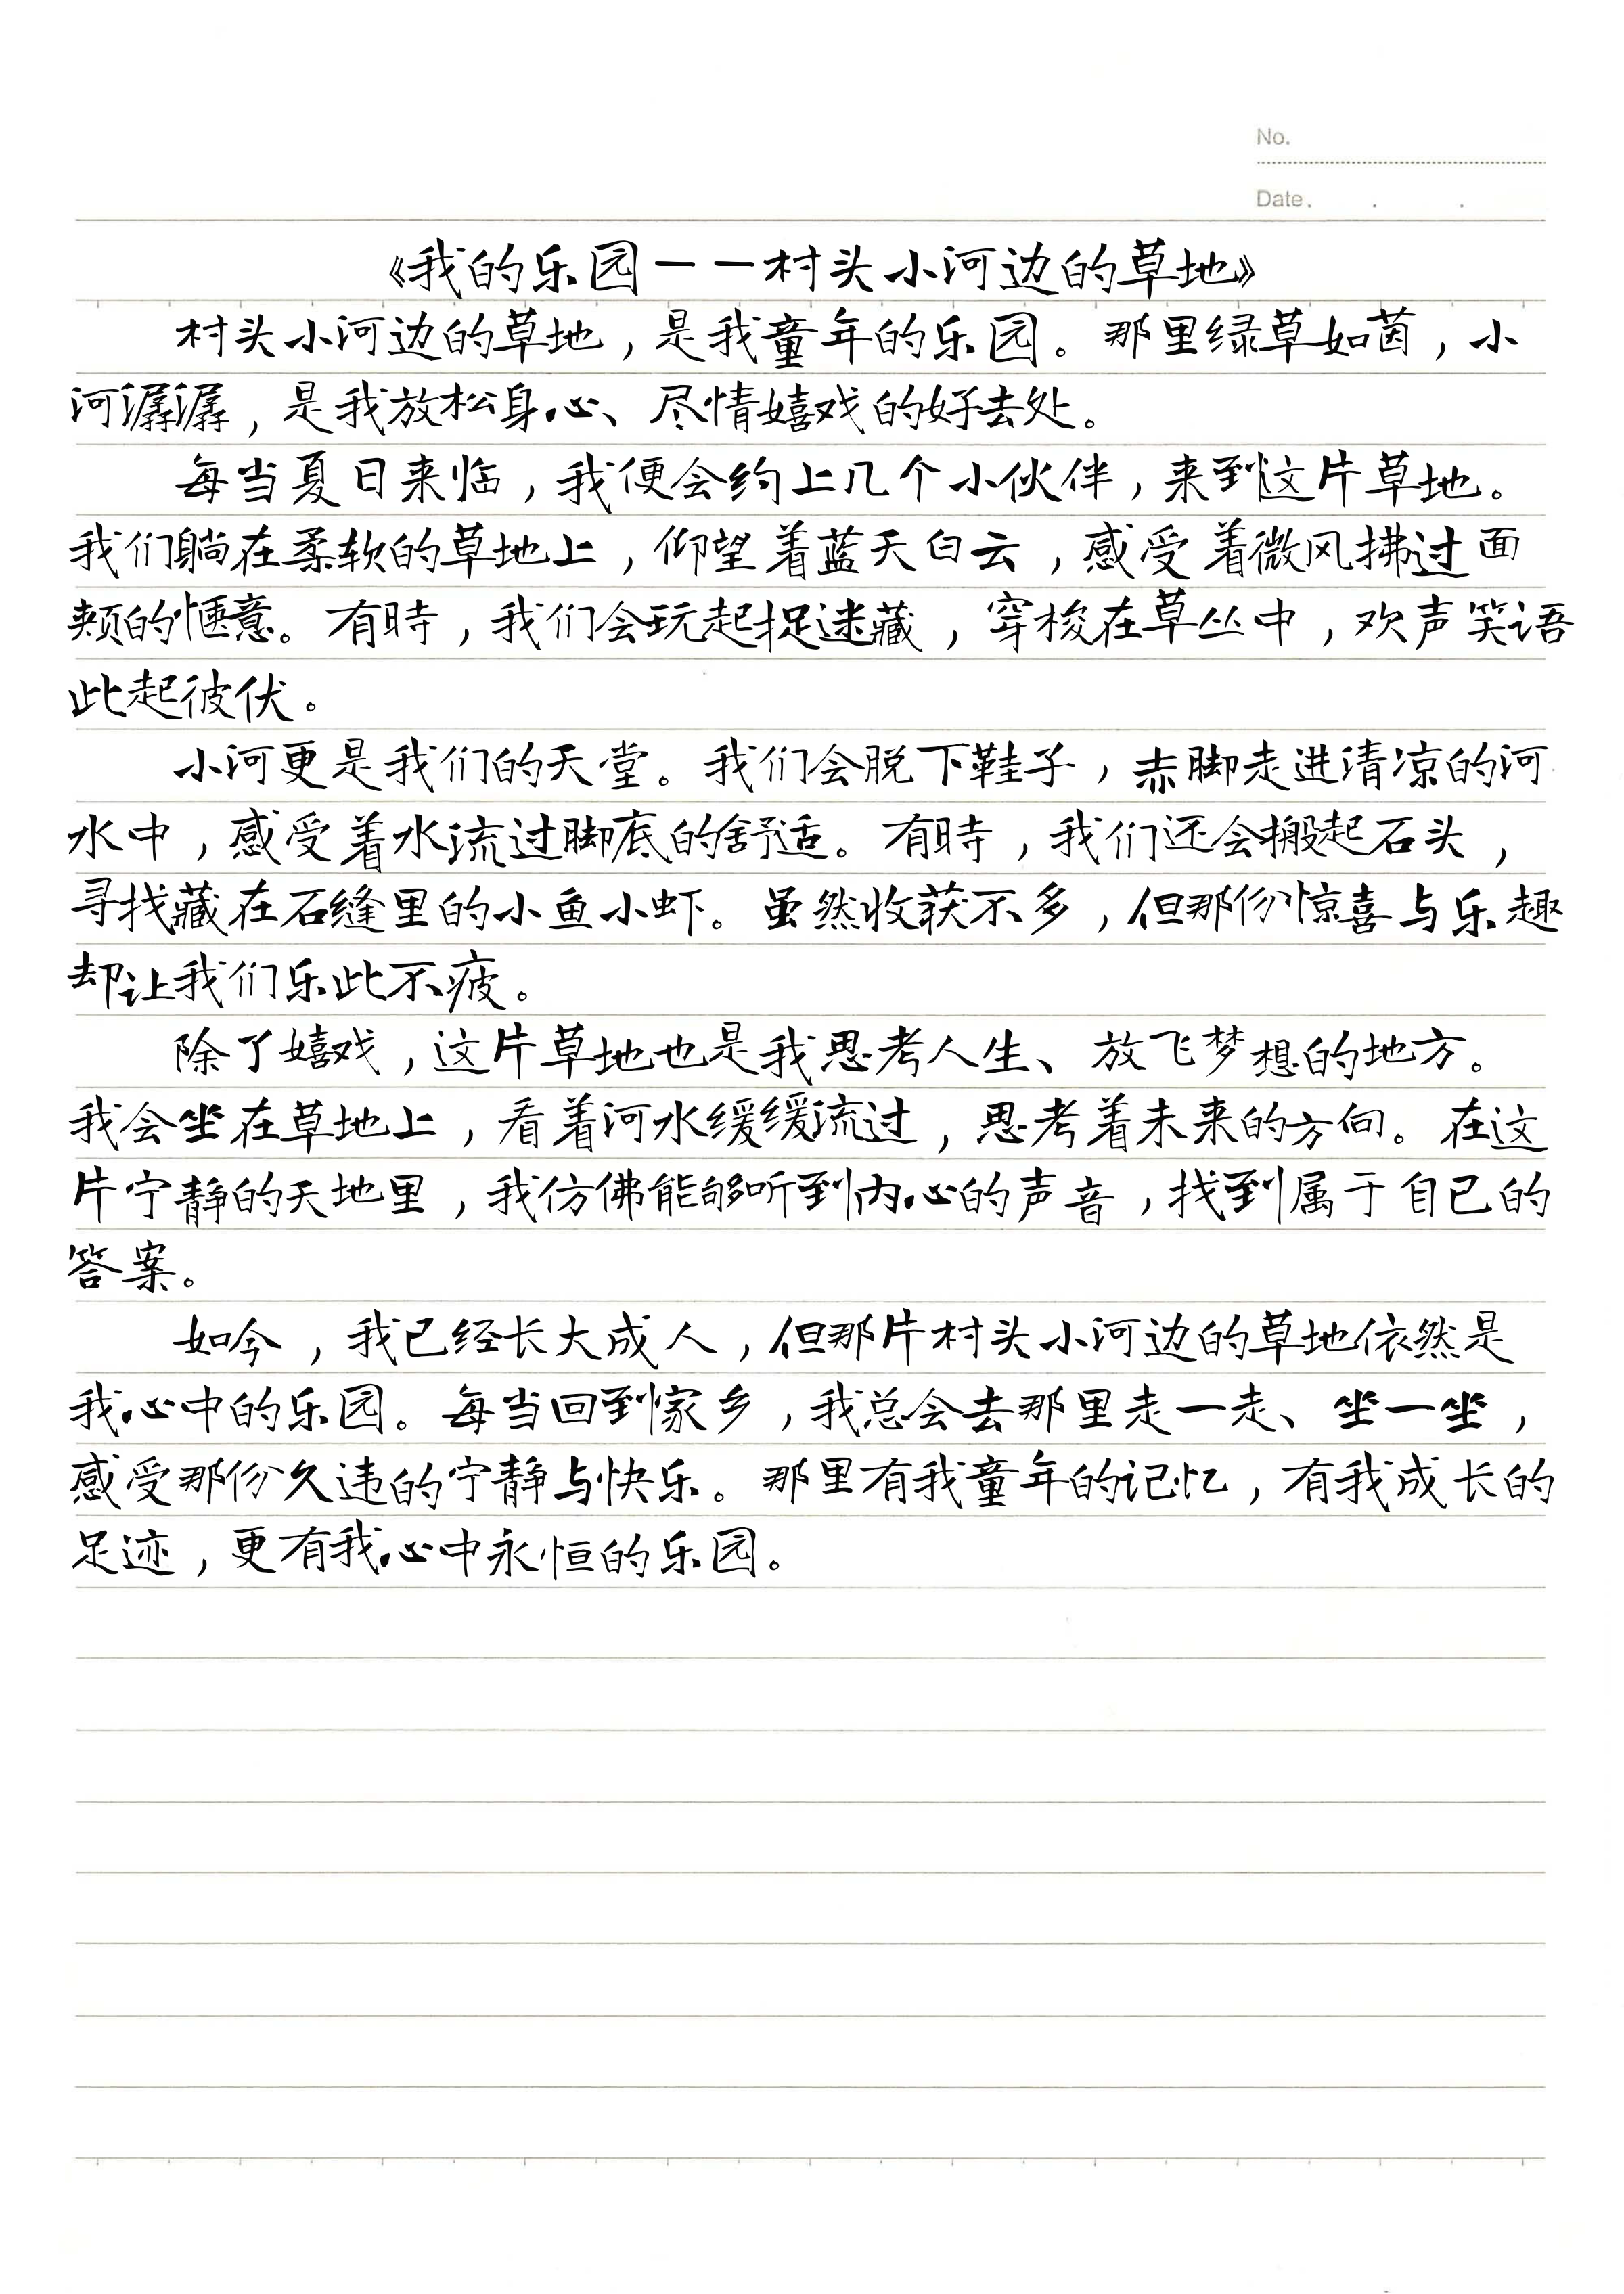 No.
Date . . .
《我的乐园一一村头小河边的草地》
村头小河边的草地，是我童年的乐园。那里绿草如茵，小
河潺潺，是我放松身心、尽情嬉戏的好去处。
每当夏日来临，我便会约上几个小伙伴，来到这片草地。
我们躺在柔软的草地上，仰望着蓝天白云，感受着微风拂过面
颊的惬意。有時，我们会玩起捉迷藏，穿梭在草丛中，欢声笑语
此起彼伏。
小河更是我们的天堂。我们会脱下鞋子，赤脚走进清凉的河
水中，感受着水流过脚底的舒适。有時，我们还会搬起石头，
寻找藏在石缝里的小鱼小虾。虽然收获不多，但那份惊喜与乐趣
却让我们乐此不疲。
除了嬉戏，这片草地也是我思考人生、放飞梦想的地方。
我会坐在草地上，看着河水缓缓流过，思考着未来的方向。在这
片宁静的天地里，我仿佛能够听到内心的声音，找到属于自己的
答案。
如今，我已经长大成人，但那片村头小河边的草地依然是
我心中的乐园。每当回到家乡，我总会去那里走一走、坐一坐，
感受那份久违的宁静与快乐。那里有我童年的记忆，有我成长的
足迹，更有我心中永恒的乐园。